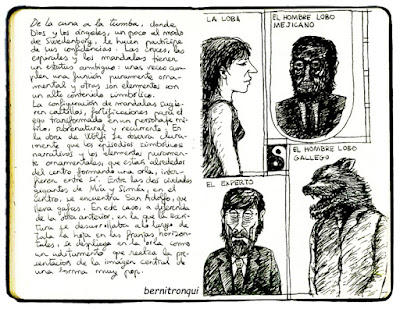 De la cuna a la tumba, donde
Dios y los ángeles, un poco al modo
de Swedenborg, le hacen partícipe
de sus confidencias. Las cruces, las
espirales y los mandalas tienen
un estatus ambiguo: unas veces cum-
plen una función puramente orna-
mental y otras son elementos con
un alto contenido simbólico.
La configuración de mandalas sugie-
ren castillos, fortificaciones para el
ego transformado en un personaje mí-
tico, sobrenatural y recurrente. En
la obra de Wölfli se observa clara-
mente que los episodios simbólicos
narrativos y los elementos puramen-
te ornamentales, que están alrededor
del centro formando una orla, inter-
fieren entre sí. Entre las dos ciudades
gigantes de Mía y Simea, en el
centro, se encuentra San Adolfo, que
lleva gafas. En este caso, a diferencia
de la otra anterior, en la que la escri-
tura se desarrollaba a lo largo de
toda la hoja en las franjas horizon-
tales, se despliega en la orla como
un aditamento que realza la pre-
sentación de la imagen central de
una forma muy pop.
bernitronqui
LA LOBA
EL HOMBRE LOBO
MEJICANO
EL EXPERTO
EL HOMBRE LOBO
GALLEGO